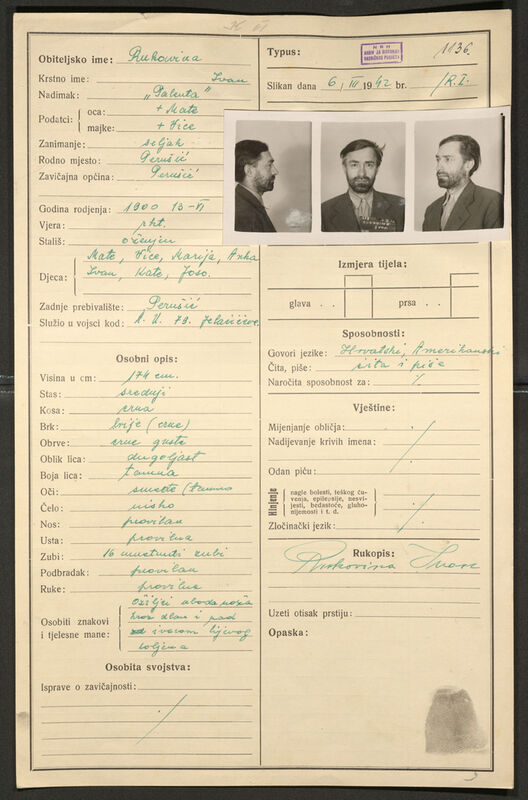 Obiteljsko ime: Rukovina
Krstno ime: Ivan
Nadimak: „Paleta"
Podatci: oca: + Mate
majke: + Vice
Zanimanje: seljak
Rodno mjesto: Perušić
Zavičajna općina: Perušić
Godina rodjenja: 1900 13-VI
Vjera: rkt.
Stališ: oženjen
Djeca: Mate, Vice, Marija, Anka
Ivan, Kate, Joso.
Zadnje prebivalište: Perušić
Služio u vojsci kod: A. U. 79.
Osobni opis:
Visina u cm: 174 cm.
Stas: srednji
Kosa: crna
Brk: brije (crne)
Obrve: crne guste
Oblik lica: dugoljast
Boja lica: tamna
Oči: smeđe (tamno
Čelo: nisko
Nos: pravilan
Usta: pravilna
Zubi: 16 zubi
Podbradak: pravilan
Ruke: pravilne
Osobiti znakovi i tjelesne mane: Ožiljci uboda noža
kroz dlan i pod
lijevog
koljena
Osobita svojstva:
Isprave o zavičajnosti:
Typus: 1136.
Slikan dana 6, III 1942 br. /R.I.
Izmjera tijela:
glava . . prsa . .
Sposobnosti:
Govori jezike: Hrvatski, Amerikanski
Čita, piše: čita i piše
Naročita sposobnost za:
Vještine:
Mijenjanje obličja:
Nadijevanje krivih imena:
Odan piću:
Kinjenje nagle bolesti, teškog ču-
venja, epilepsije, nesvi-
jesti, bedastoće, gluho-
nijemosti i t. d.
Zločinački jezik:
Rukopis:
Rukovina Ivan
Uzeti otisak prstiju:
Opaska: